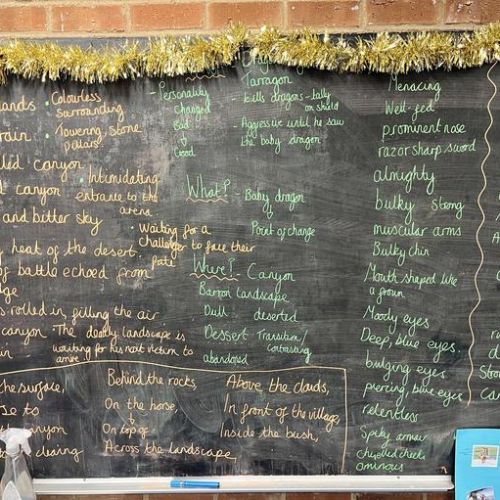 lands
rain
canyon.
canyon
and bitter sky
heat of the desert.
of battle echoed from
rolled in, filling the air
canyon
• Colourless
surrounding
• Towering, stone
pillars
• Intimidating
entrance to the
arena
• Waiting for a
challenger to face their
fate
The deadly landscape is
waiting for his next victim to
- Personality
changed
Bad
↓
Good
Tarragon
- kills dragons - tally
on shield
- Aggressive until he saw
the baby dragon
What?
- Baby dragon
↓
Point of change
Where? - Canyon
Barron landscape
Dull deserted
Dessert Transition/
abandoned contrasting
Menacing
Well-fed
prominent nose
razor sharp sword
almighty
bulky strong
muscular arms
Bulky chin
Mouth shaped like
a frown
Moody eyes
Deep, blue eyes.
bulging eyes
piercing, blue eyes
relentless
Spiky armour
chiselled cheeks
ominous
the surface,
to
canyon
Behind the rocks
On the horse,
On top of
Across the landscape
Above the clouds,
In front of the village,
Inside the bush,